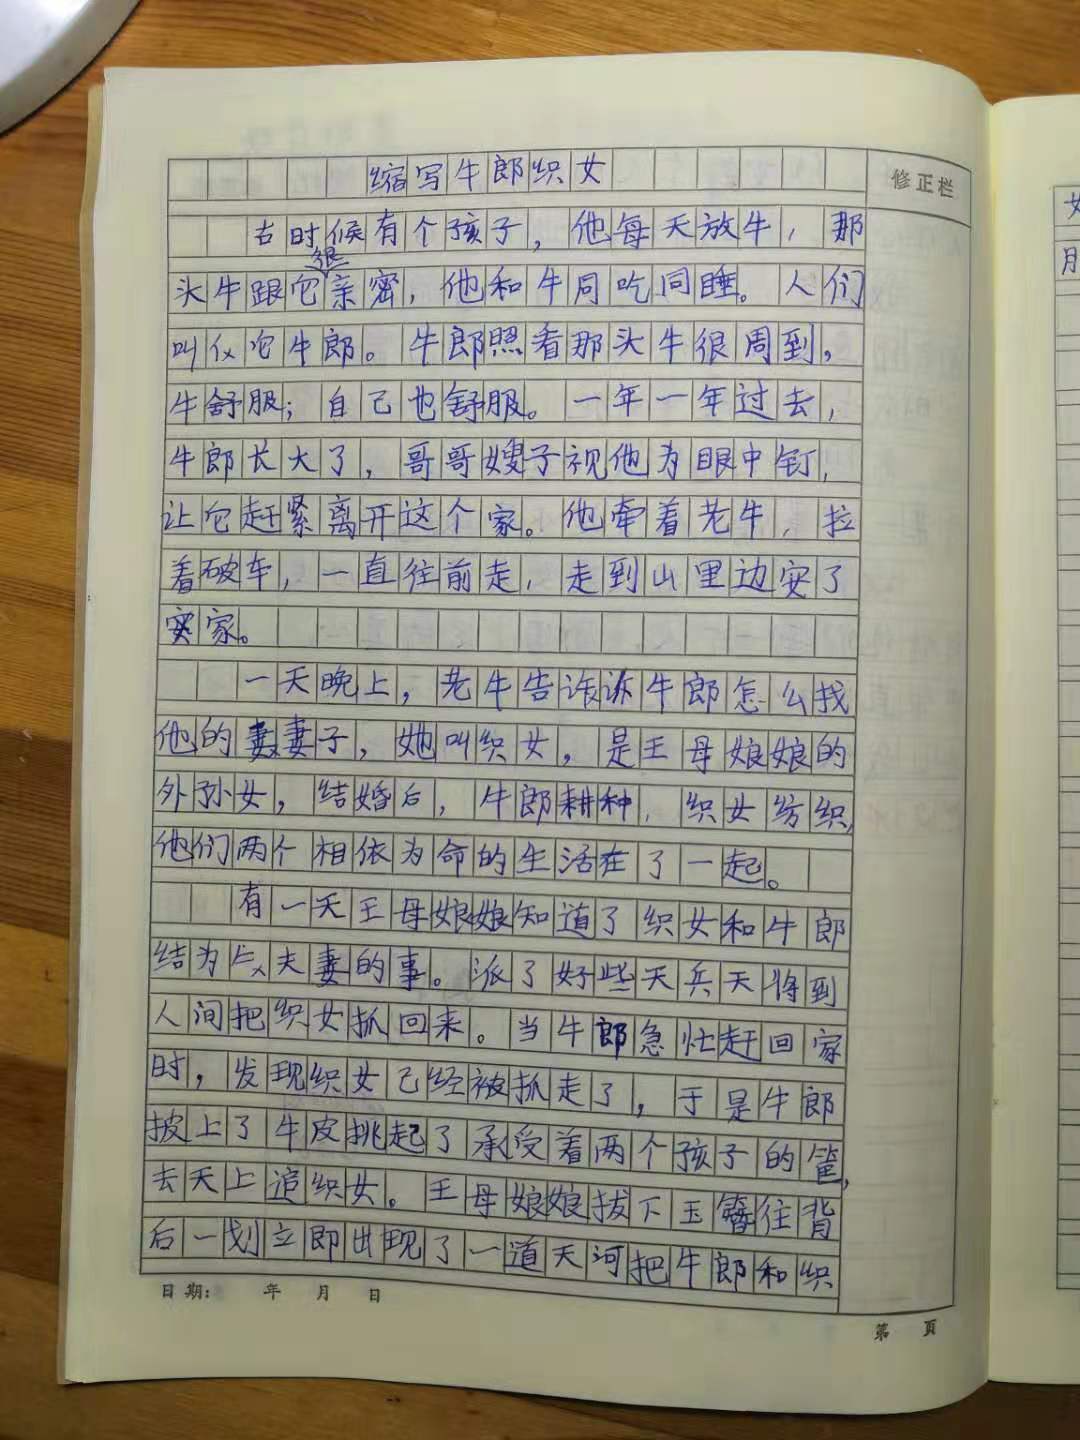 缩写牛郎织女
修正栏
古时候有个孩子，他每天放牛，那
很
头牛跟它亲密，他和牛同吃同睡。人们
叫它牛郎。牛郎照看那头牛很周到，
牛舒服；自己也舒服。一年一年过去，
牛郎长大了，哥哥嫂子视他为眼中钉，
让它赶紧离开这个家。他牵着老牛，拉
着破车，一直往前走，走到山里边安了
家。
一天晚上，老牛告诉牛郎怎么找
他的妻子，她叫织女，是王母娘娘的
外孙女，结婚后，牛郎耕种，织女纺织，
他们两个相依为命的生活在了一起。
有一天王母娘娘知道了织女和牛郎
结为夫妻的事。派了好些天兵天将到
人间把织女抓回来。当牛郎急忙赶回家
时，发现织女已经被抓走了，于是牛郎
披上了牛皮挑起了承受着两个孩子的筐，
去天上追织女。王母娘娘拔下玉簪往背
后一划立即出现了一道天河把牛郎和织
日期： 年 月 日
第 页
女
月